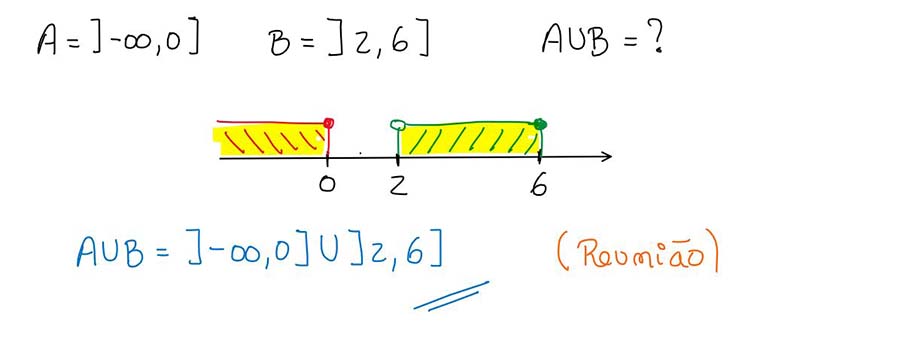 A = ]-∞,0] B = ]2,6] A∪B = ?
0 2 6
A∪B = ]-∞,0]∪]2,6] (Reunião)